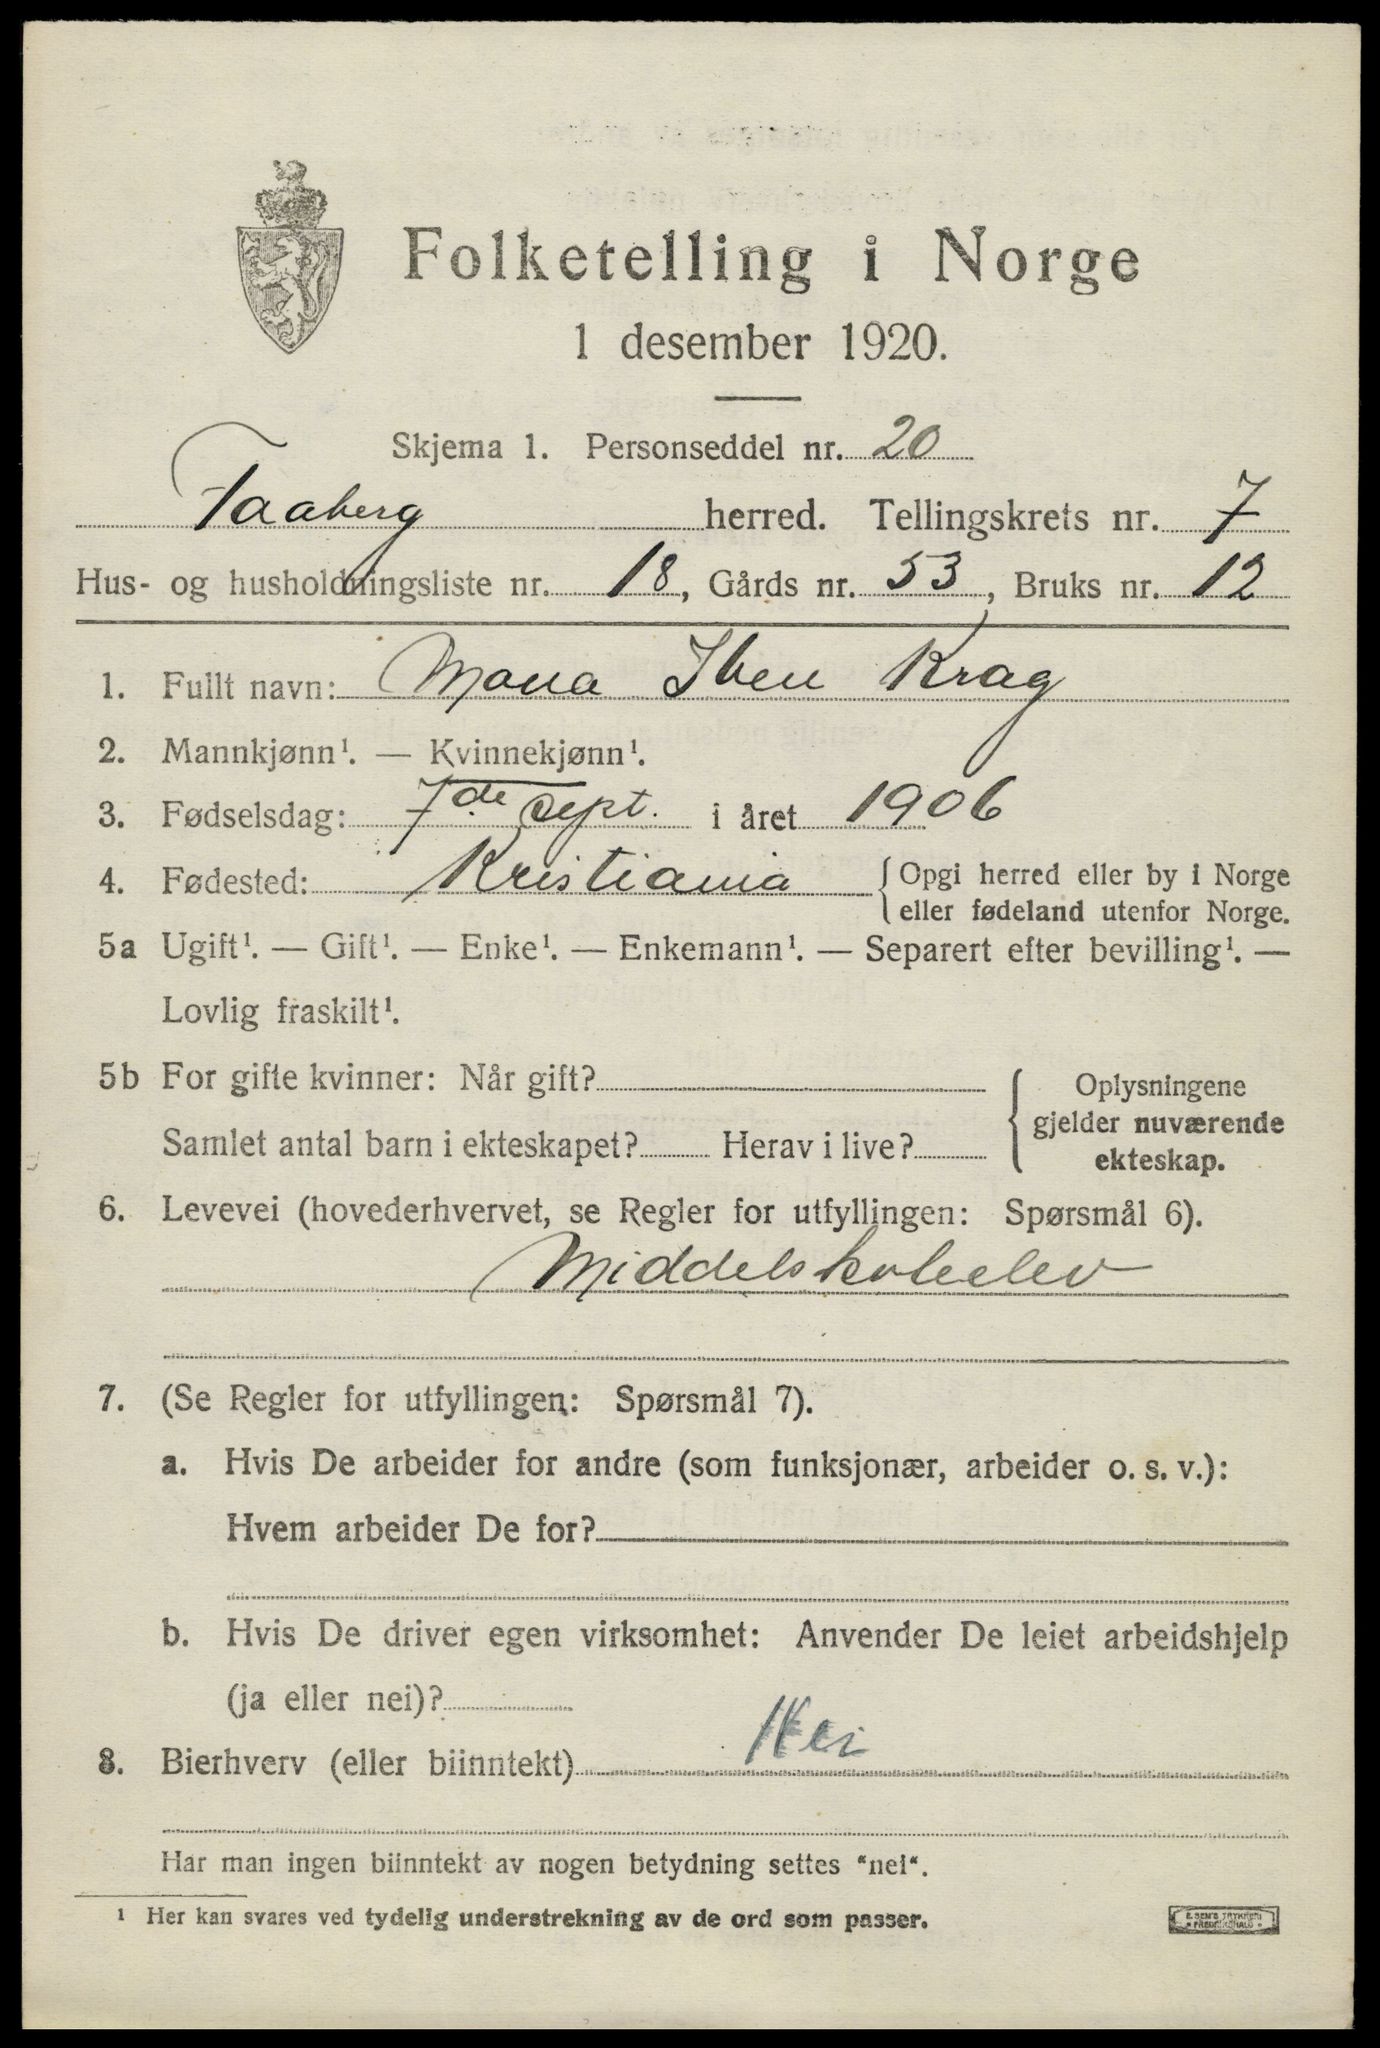 Folketelling i Norge
1 desember 1920.
Skjema 1. Personseddel nr. 20
Faaberg herred. Tellingskrets nr. 7
Hus- og husholdningsliste nr. 18, Gårds nr. 53, Bruks nr. 12
1. Fullt navn: Mona Iben Krag
2. Mannkjønn¹. — Kvinnekjønn¹.
3. Fødselsdag: 7de sept. i året 1906
4. Fødested: Kristiania { Opgi herred eller by i Norge
eller fødeland utenfor Norge.
5a Ugift¹. — Gift¹. — Enke¹. — Enkemann¹. — Separert efter bevilling¹. —
Lovlig fraskilt¹.
5b For gifte kvinner: Når gift?
Samlet antal barn i ekteskapet? Herav i live?
{ Oplysningene
gjelder nuværende
ekteskap.
6. Levevei (hovederhvervet, se Regler for utfyllingen: Spørsmål 6).
Middelskoleelev
7. (Se Regler for utfyllingen: Spørsmål 7).
a. Hvis De arbeider for andre (som funksjonær, arbeider o. s. v.):
Hvem arbeider De for?
b. Hvis De driver egen virksomhet: Anvender De leiet arbeidshjelp
(ja eller nei)?
8. Bierhverv (eller biinntekt) Nei
Har man ingen biinntekt av nogen betydning settes "nei".
¹ Her kan svares ved tydelig understrekning av de ord som passer.